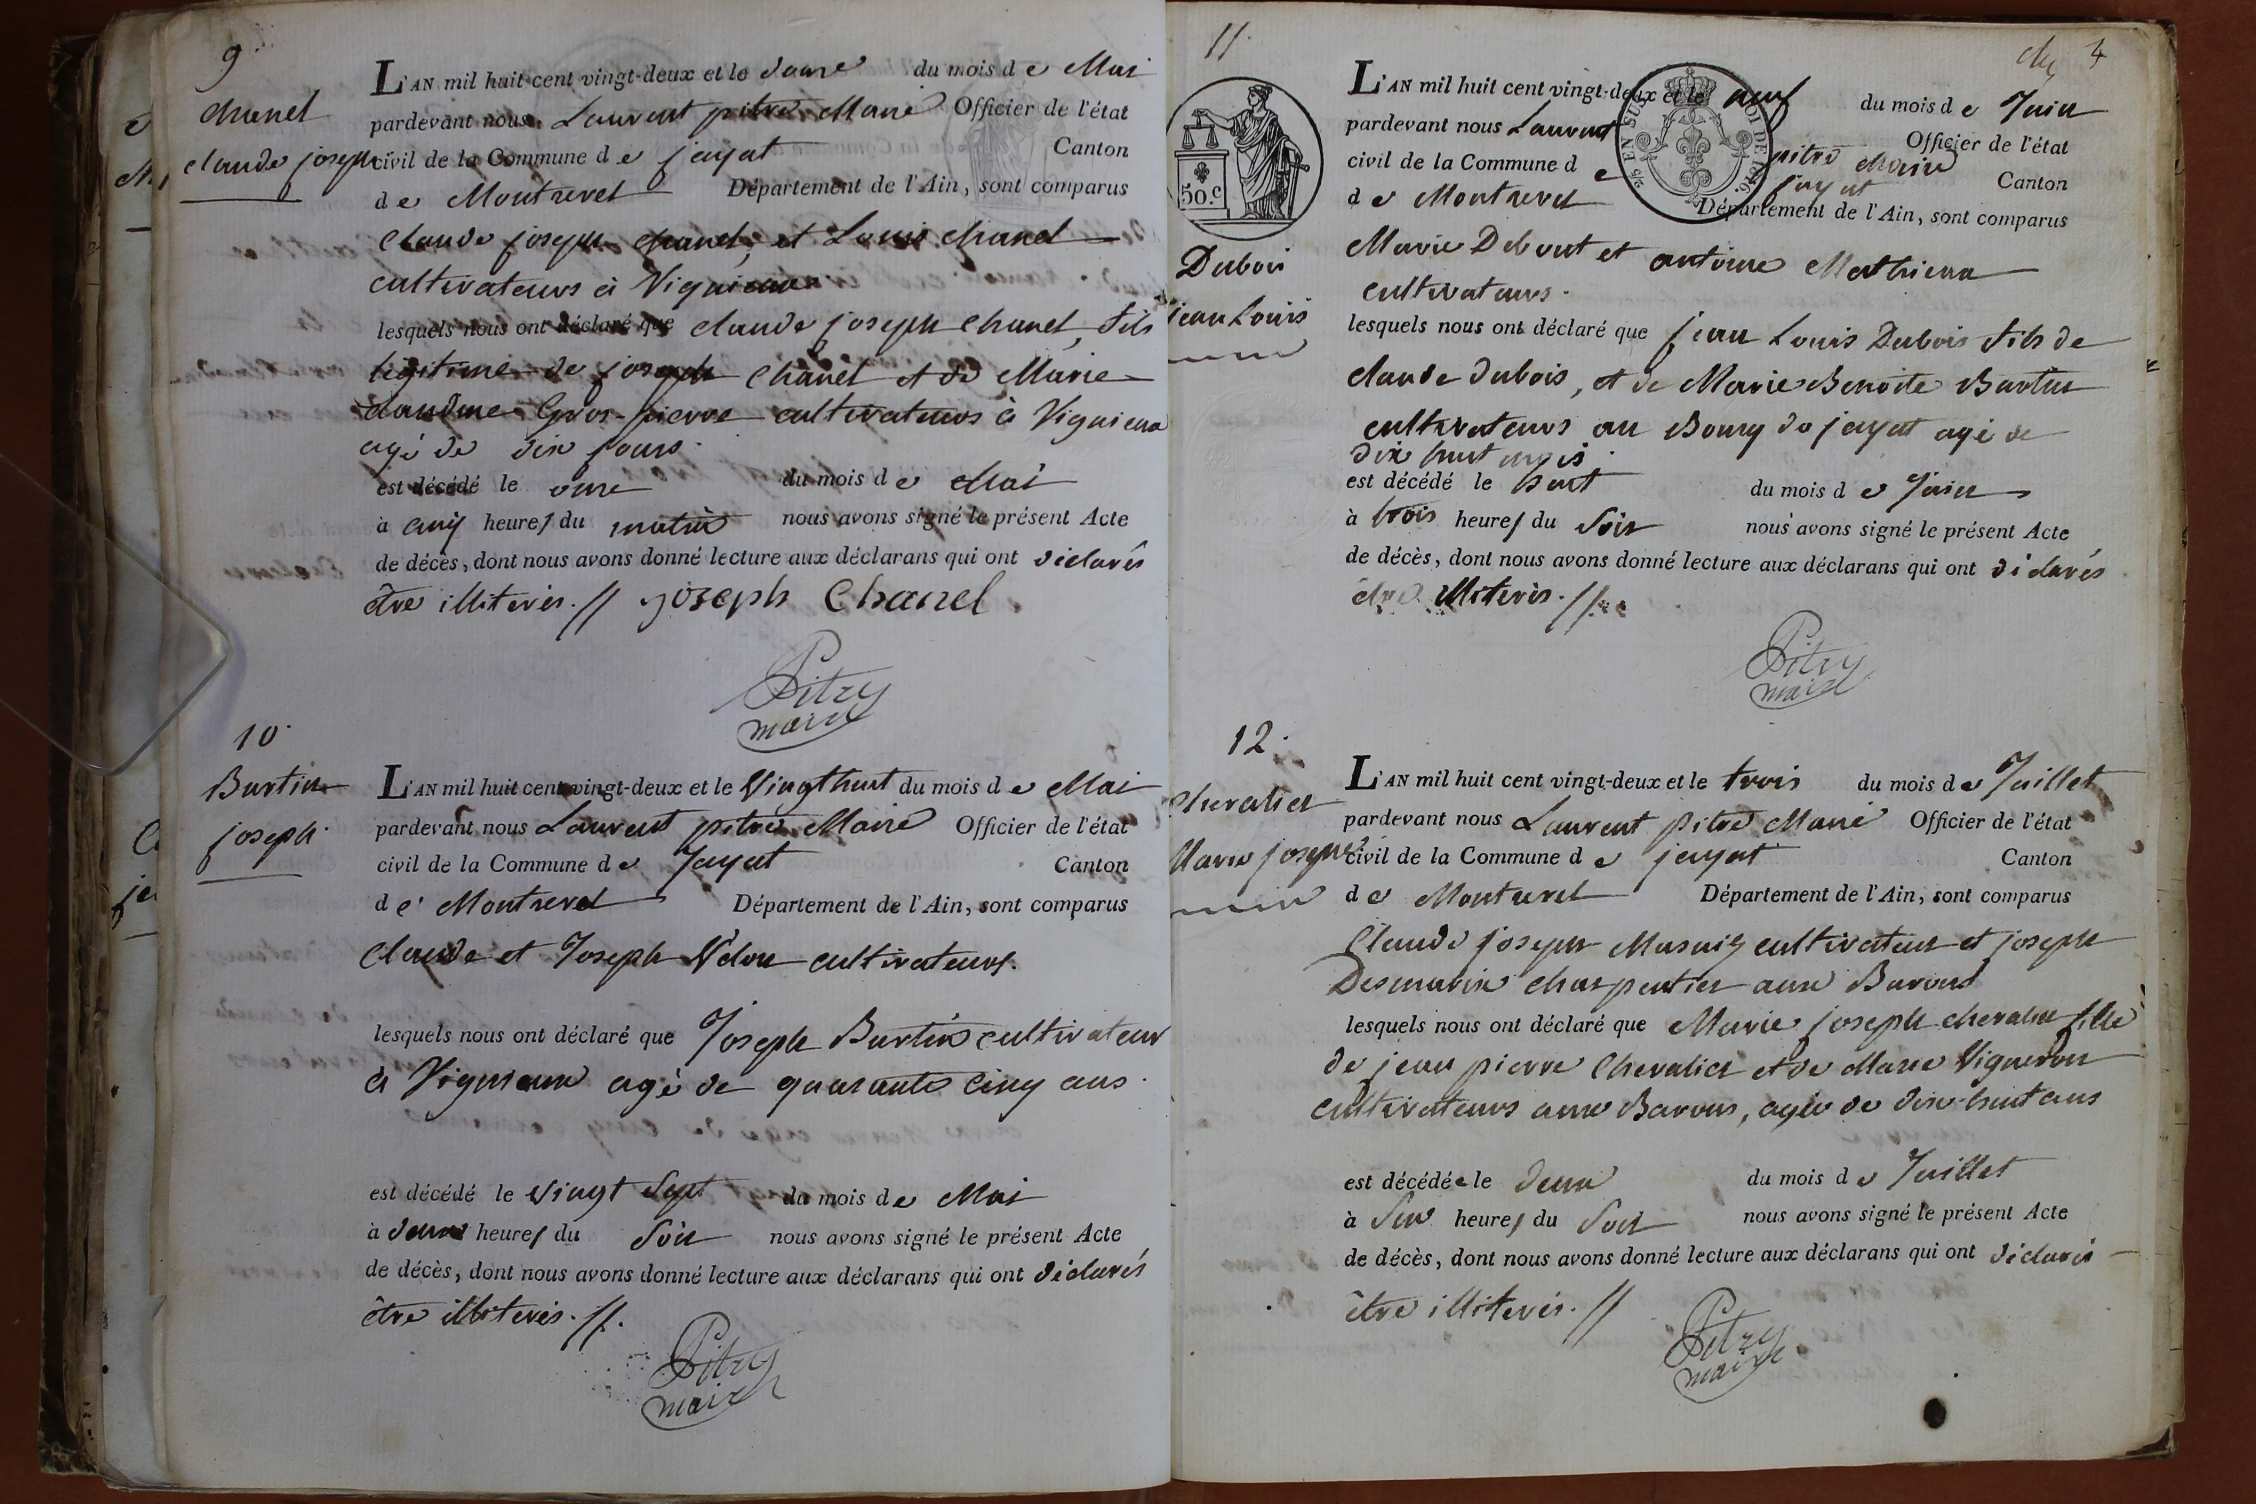 9.
Chanel
Claude joseph
L'AN mil huit cent vingt-deux et le douze du mois de Mai
pardevant nous Laurent pitre Maire Officier de l'état
civil de la Commune de jayat Canton
de Montrevel Département de l'Ain, sont comparus
Claude joseph Chanel, et Louis Chanel
cultivateurs à Vigueneux
lesquels nous ont déclaré que claude joseph Chanel, fils
légitime de joseph Chanel et de Marie
claudine Gros-pierre cultivateurs à
agé de dix jours.
est décédé le onze du mois de Mai
à cinq heures du matin nous avons signé le présent Acte
de décès, dont nous avons donné lecture aux déclarans qui ont déclarés
être illiterés. // joseph Chanel
Pitre
maire
10.
Burtin
joseph.
L'AN mil huit cent vingt-deux et le Vingt huit du mois de Mai
pardevant nous Laurent pitre Maire Officier de l'état
civil de la Commune de Jayat Canton
de Montrevel Département de l'Ain, sont comparus
Claude et Joseph cultivateurs.
lesquels nous ont déclaré que Joseph Burtin cultivateur
à agé de quarante cinq ans.
est décédé le vingt sept du mois de Mai
à deux heures du soir nous avons signé le présent Acte
de décès, dont nous avons donné lecture aux déclarans qui ont déclarés
être illiterés. //.
Pitre
maire
11.
4
50.c
EN SUS
LOI DE 1816.
Dubois
jean Louis
L'AN mil huit cent vingt-deux et le neuf du mois de Juin
pardevant nous Laurent pitre Maire Officier de l'état
civil de la Commune de jayat Canton
de Montrevel Département de l'Ain, sont comparus
Marie Debout et antoine Mathieux
cultivateurs.
lesquels nous ont déclaré que jean Louis Dubois fils de
claude dubois, et de Marie Benoite Burtin
cultivateurs au Bourg de jayat agé de
dix huit mois.
est décédé le huit du mois de Juin
à trois heures du soir nous avons signé le présent Acte
de décès, dont nous avons donné lecture aux déclarans qui ont déclarés
être illiterés. //.
Pitre
maire
12.
Chevalier
Marie joseph
L'AN mil huit cent vingt-deux et le trois du mois de Juillet
pardevant nous Laurent pitre Maire Officier de l'état
civil de la Commune de jayat Canton
de Montrevel Département de l'Ain, sont comparus
Claude joseph cultivateur et joseph
Desmaris charpentier aux Barons
lesquels nous ont déclaré que Marie joseph chevalier fille
de jean pierre Chevalier et de Marie Vigneron
cultivateurs aux Barons, agée de dix-huit ans
est décédée le deux du mois de Juillet
à six heures du soir nous avons signé le présent Acte
de décès, dont nous avons donné lecture aux déclarans qui ont déclarés
être illiterés. //
Pitre
maire